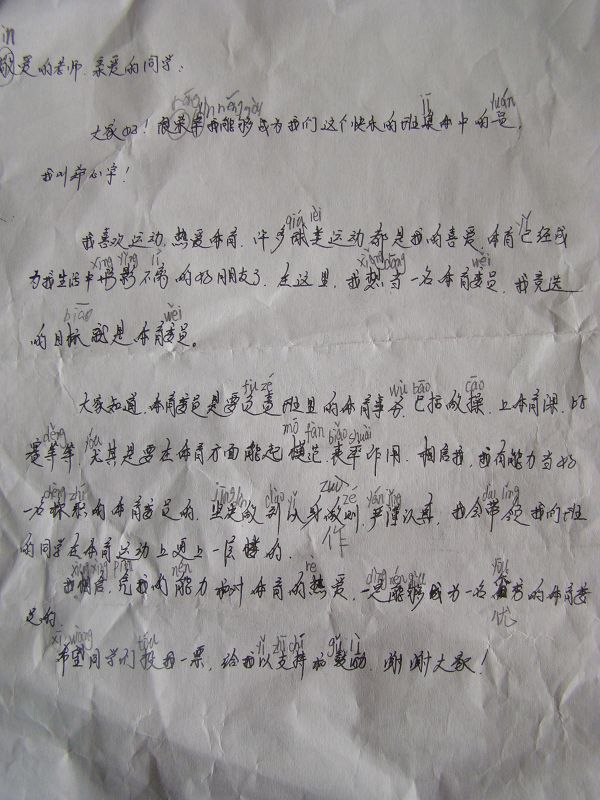 敬爱的老师、亲爱的同学:
大家好!很荣幸我能够成为我们这个快乐的班集体中的一员,
我叫
我喜欢运动,热爱体育,许多球类运动都是我的喜爱,体育已经成
为我生活中形影不离的好朋友了,在这里,我想当一名体育委员,我竞选
的目标就是体育委员。
大家知道,体育委员是要负责班里的体育事务,包括做操、上体育课、比
赛等等,尤其是要在体育方面能起模范表率作用.相信我,我有能力当好
一名称职的体育委员的,坚定做到以身作则,严谨认真,我会带领我们班
的同学在体育运动上更上一层楼的.
我相信,凭我的能力和对体育的热爱,一定能够成为一名优秀的体育委
员的.
希望同学们投我一票,给我以支持和鼓励.谢谢大家!